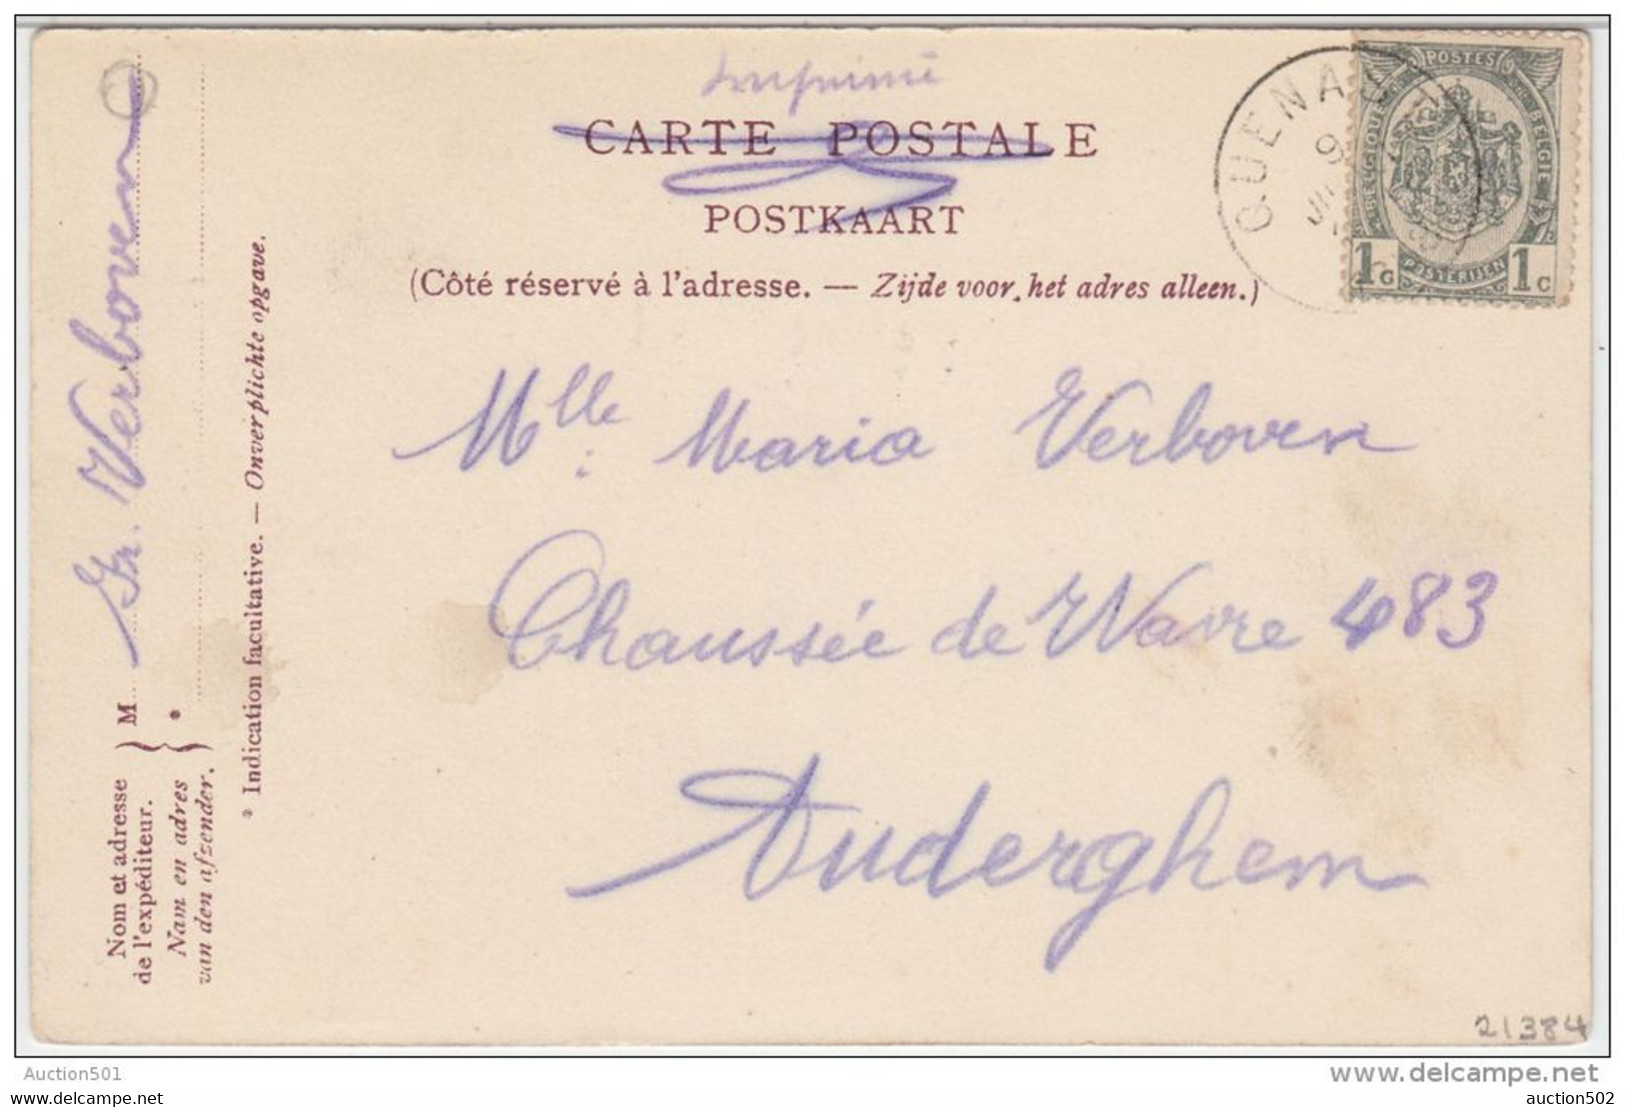 Imprimé
CARTE POSTALE
POSTKAART
(Côté réservé à l'adresse. — Zijde voor het adres alleen.)
QUENA
9
POSTES
BELGIQUE
BELGIE
POSTERIJEN
1c 1c
Mlle Maria Verboven
Chaussée de Wavre 483
Auderghem
Nom et adresse
de l'expéditeur.
Nam en adres
van den afzender.
M
*
Verboven
* Indication facultative. — Onverplichte opgave.
21384
Auction501
www.delcampe.net
auction502
auction502